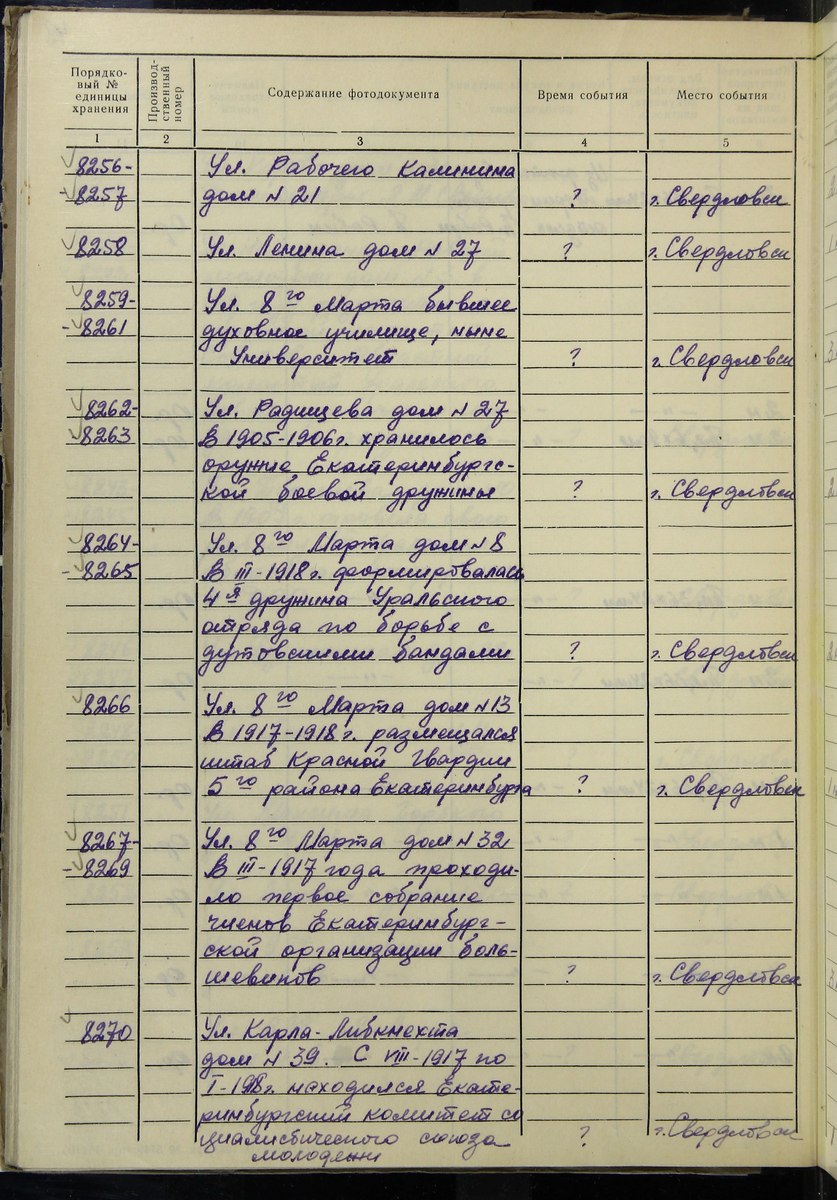 Порядко-
вый №
единицы
хранения
Производ-
ственный
номер
Содержание фотодокумента
Время события
Место события
1 2 3 4 5
8256- Ул. Рабочего Калинина
-8257 дом № 21 ? г. Свердловск
8258 Ул. Ленина дом № 27 ? г. Свердловск
8259- Ул. 8го Марта бывшее
-8261 духовное училище, ныне
Университет ? г. Свердловск
8262- Ул. Радищева дом № 27
8263 В 1905-1906 г. хранилось
оружие Екатеринбургс-
кой боевой дружины ? г. Свердловск
8264- Ул. 8го Марта дом № 8
-8265 В III-1918 г. формировалась
4я дружина Уральского
отряда по борьбе с
дутовскими бандами ? г. Свердловск
8266 Ул. 8го Марта дом № 13
В 1917-1918 г. размещался
штаб Красной Гвардии
5го района Екатеринбурга ? г. Свердловск
8267- Ул. 8го Марта дом № 32
-8269 В III-1917 года проходи-
ло первое собрание
членов Екатеринбург-
ской организации боль-
шевиков ? г. Свердловск
8270 Ул. Карла-Либкнехта
дом № 39. С VIII-1917 по
I-1918 г. находился Екате-
ринбургский комитет со
циалистического союза ? г. Свердловск
молодежи